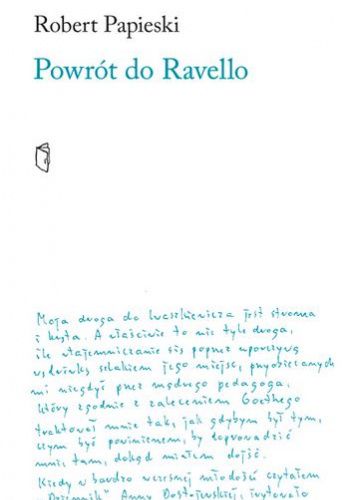 Robert Papieski
Powrót do Ravello
Moja droga do Iwaszkiewicza jest stroma
i kręta. A właściwie to nie tyle droga,
ile wtajemniczanie się poprzez uporczywą
wędrówkę szlakiem jego miejsc, przyobiecanych
mi niegdyś przez mądrego pedagoga,
który zgodnie z zaleceniem Goethego
traktował mnie tak, jak gdybym był tym,
czym być powinienem, by doprowadzić
mnie tam, dokąd miałem dojść.
Kiedy w bardzo wczesnej młodości czytałem
"Dziennik" Anny Dostojewskiej,